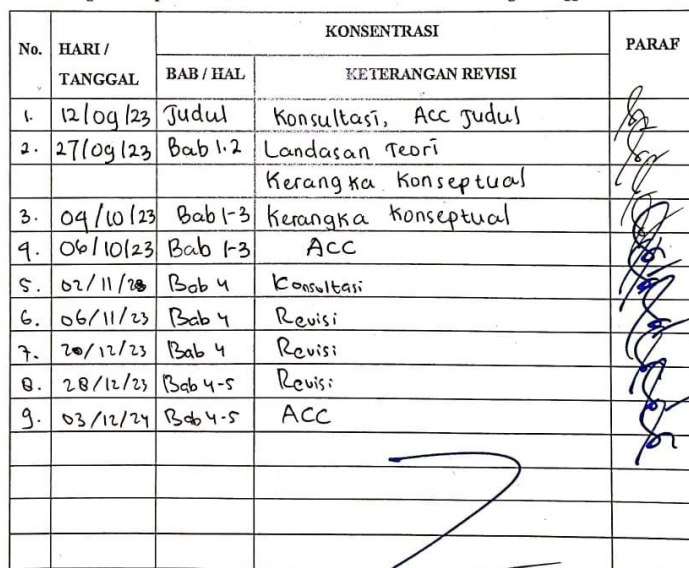 No. HARI / TANGGAL KONSENTRASI PARAF
BAB / HAL KETERANGAN REVISI
1. 12/09/23 Judul Konsultasi, Acc Judul
2. 27/09/23 Bab 1.2 Landasan Teori
Kerangka Konseptual
3. 04/10/23 Bab 1-3 Kerangka Konseptual
4. 06/10/23 Bab 1-3 ACC
5. 02/11/23 Bab 4 Konsultasi
6. 06/11/23 Bab 4 Revisi
7. 20/12/23 Bab 4 Revisi
8. 28/12/23 Bab 4-5 Revisi
9. 03/12/24 Bab 4-5 ACC